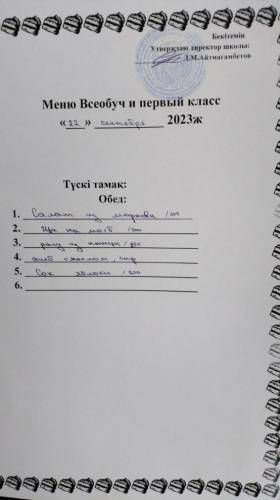 Бекітемін
Утверждаю директор школы:
Д.М.Айтмагамбетов
Меню Всеобуч и первый класс
«22» сентября 2023ж
Түскі тамақ:
Обед:
1. Салат из моркови /
2. Щи на м /
3. рагу из птицы /
4. хлеб с маслом, сыр
5. Сок яблоко / 200
6.